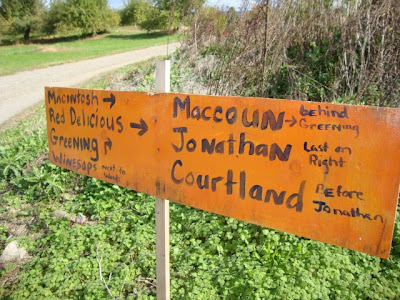 Macintosh →
Red Delicious →
Greening
Winesaps next to
Maccoun → behind Greening
Jonathan Last on Right
Courtland Before Jonathan